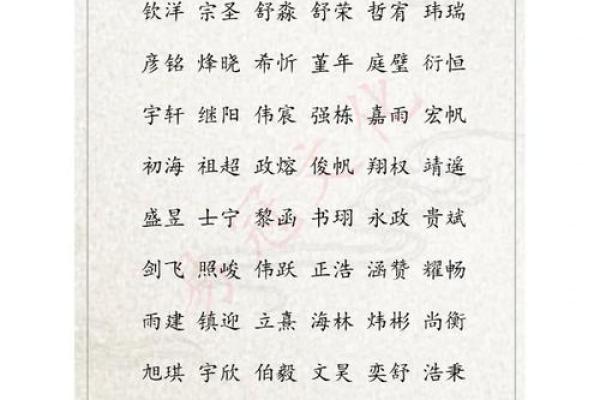 钦洋 宗圣 舒淼 舒荣 哲宥 玮瑞
彦铭 烽晓 希忻 堇年 庭璧 衍恒
宇轩 继阳 伟宸 强栋 嘉雨 宏帆
初海 祖超 政熔 俊帆 翔权 靖遥
盛昱 士宁 黎函 书珝 永政 贵斌
剑飞 照峻 伟跃 正浩 涵赞 耀畅
雨建 镇迎 立熹 海林 炜彬 尚衡
旭琪 宇欣 伯毅 文昊 奕舒 浩秉